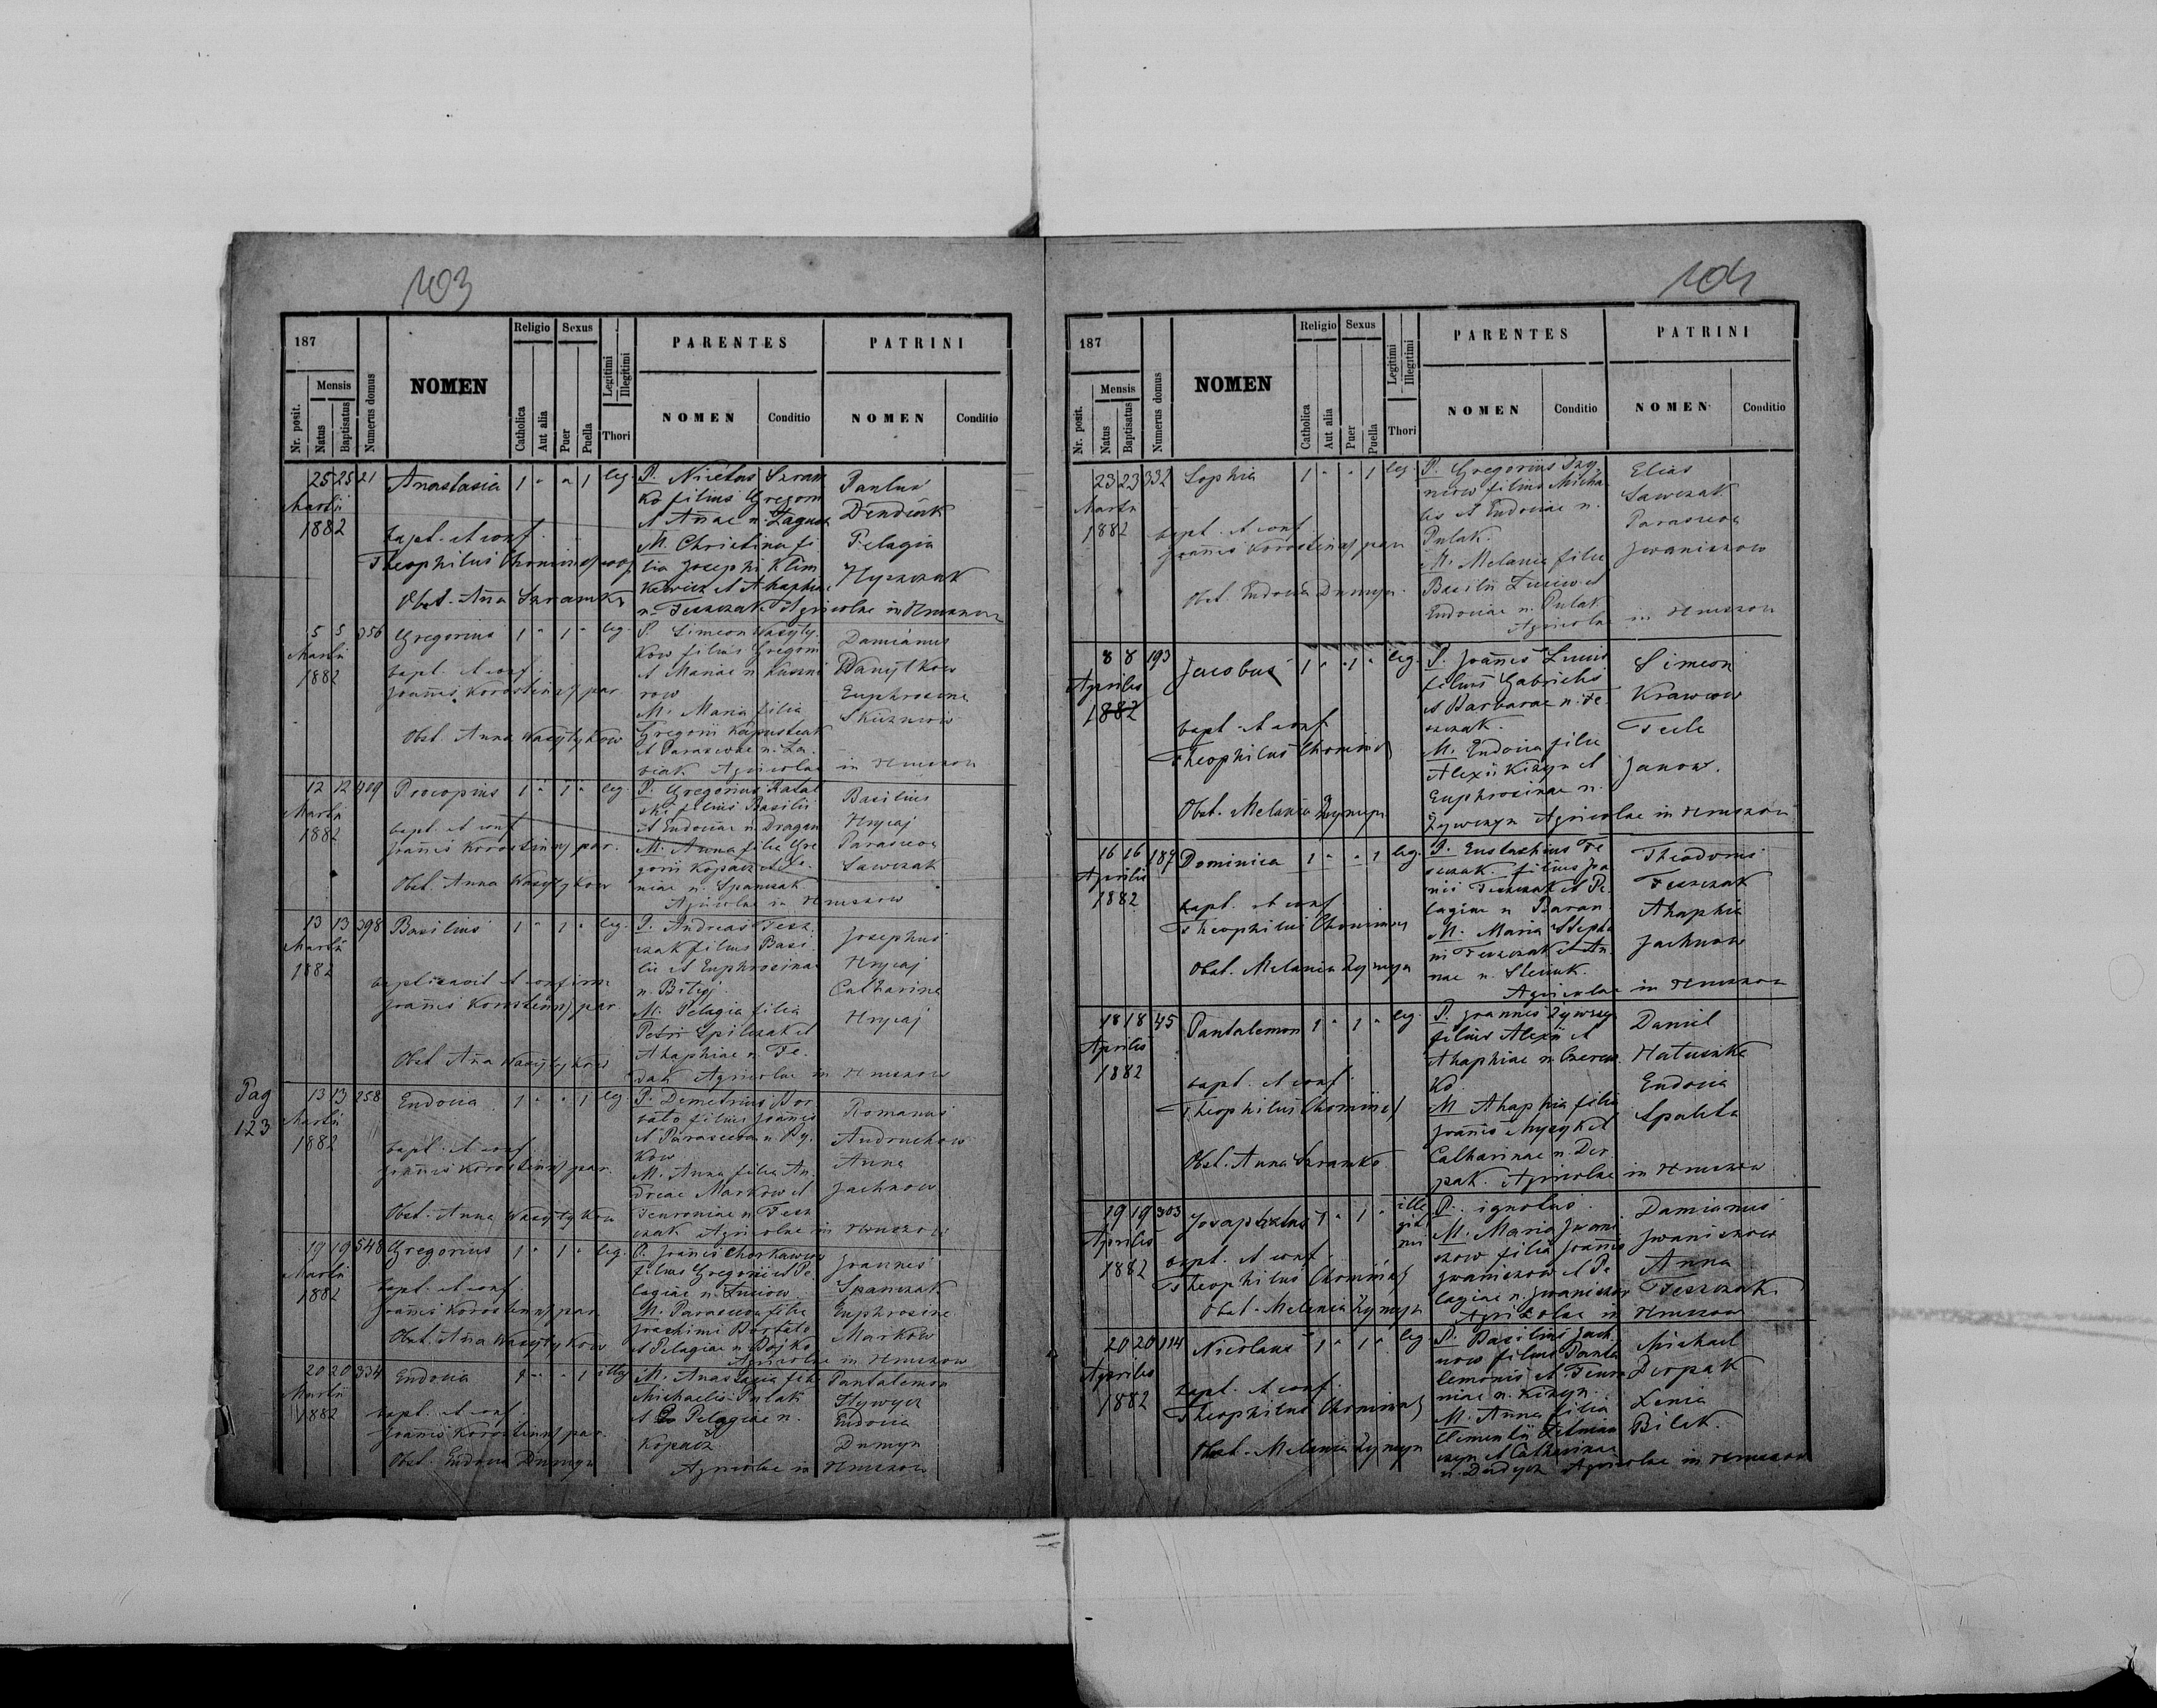 103
187
Religio
Sexus
Legitimi
Illegitimi
PARENTES
PATRINI
Nr. posit.
Mensis
Natus
Baptisatus
Numerus domus
NOMEN
Catholica
Aut alia
Puer
Puella
Thori
NOMEN
Conditio
NOMEN
Conditio
25 25 21 Anastasia 1 " " 1 leg.
Martii
1882
bapt. et conf.
Theophilus
Obst. Anna Szramko
P. Nicetas Szram
ko filius Gregorii
et Annae n.
M. Christina fi
lia Josephi Klim
kewicz et Ahaphiae
n. Teszczak Agricolae in Hruszow
Paulus
Dendiuk
Pelagia
5 5 356 Gregorius 1 " 1 " leg.
Martii
1882
bapt. et conf.
Joannes Korostenskyj par.
Obst. Anna Wasylykow
P. Simeon Wasyly
kow filius Gregorii
et Mariae n.
row
M. Maria filia
Gregorii Kapusteak
et Parascevae n.
Agricolae in Hruszow
Damianus
Danylkow
Euphrosina
12 12 409 Procopius 1 " 1 " leg.
Martii
1882
bapt. et conf.
Joannes Korostenskyj par.
Obst. Anna Wasylykow
P. Gregorius
filius Basilii
et Eudociae n. Dragan
M. Anna filia Gre
gorii Kopacz et
niae n. Spanczak
Agricolae in Hruszow
Basilius
Hrycaj
Parasceva
Sawczak
13 13 398 Basilius 1 " 1 " leg.
Martii
1882
baptisavit et confirm.
Joannes Korostenskyj par.
Obst. Anna Wasylykow
P. Andreas Tesz
czak filius Basi
lii et Euphrosinae
n. Bilyj
M. Pelagia filia
Petri Spilczak et
Ahaphiae n. Fe
dak Agricolae in Hruszow
Josephus
Hrycaj
Catharina
Hrycaj
Pag
123
13 13 258 Eudocia 1 " " 1 leg.
Martii
1882
bapt. et conf.
Joannes Korostenskyj par.
Obst. Anna Wasylykow
P. Demetrius Bor
tato filius Joannis
et Parascevae n. Dy
kow
M. Anna filia An
dreae Markow et
Feuroniae n. Tesz
czak Agricolae in Hruszow
Romanus
Andruchow
Anna
Jachnow
19 19 548 Gregorius 1 " 1 " leg.
Martii
1882
bapt. et conf.
Joannes Korostenskyj par.
Obst. Anna Wasylykow
P. Joannes
filius Gregorii et Pe
lagiae n. Luciow
M. Parasceva filia
Joachimi Bortato
et Pelagiae n. Bojko
Agricolae in Hruszow
Joannes
Spanczak
Euphrosina
Markow
20 20 334 Eudocia 1 " " 1 illeg.
Martii
1882
bapt. et conf.
Joannes Korostenskyj par.
Obst. Eudocia Dumyn
M. Anastasia filia
Michaelis Pulak
et Pelagiae n.
Kopacz
Agricolae in Hruszow
Pantalemon
Eudocia
Dumyn
104
187
Religio
Sexus
Legitimi
Illegitimi
PARENTES
PATRINI
Nr. posit.
Mensis
Natus
Baptisatus
Numerus domus
NOMEN
Catholica
Aut alia
Puer
Puella
Thori
NOMEN
Conditio
NOMEN
Conditio
23 23 332 Sophia 1 " " 1 leg.
Martii
1882
bapt. et conf.
Joannes Korostenskyj par.
Obst. Eudocia Dumyn
P. Gregorius
filius Micha
lis et Eudociae n.
Pulak.
M. Melania filia
Basilii Luciw et
Eudociae n. Pulak
Agricolae in Hruszow
Elias
Sawczak
Parasceva
Iwaniszow
8 8 193 Jacobus 1 " 1 " leg.
Aprilis
1882
bapt. et conf.
Theophilus
Obst. Melania Zymyn
P. Joannes Luciw
filius Gabrielis
et Barbarae n. Te
szczak.
M. Eudocia filia
Alexii Kizyn et
Euphrosinae n.
Zywczyn Agricolae in Hruszow
Simeon
Krawcow
Tecle
Janow.
16 16 187 Dominica 1 " " 1 leg.
Aprilis
1882
bapt. et conf.
Theophilus
Obst. Melania Zymyn
P. Eustachius Te
szczak filius Joa
nnis Teszczak et Pe
lagiae n. Baran
M. Maria Stepha
ni Teszczak et An
nae n.
Agricolae in Hruszow
Theodorus
Teszczak
Ahaphia
Jachnow
18 18 45 Pantalemon 1 " 1 " leg.
Aprilis
1882
bapt. et conf.
Theophilus
Obst. Anna Szramko
P. Joannes Zywczyn
filius Alexii et
Ahaphiae n.
ko
M. Ahaphia filia
Joannis et
Catharinae n. Der
pak. Agricolae in Hruszow
Daniel
Eudocia
19 19 303 Josaphatus 1 " 1 " ille
giti
mi
Aprilis
1882
bapt. et conf.
Theophilus
Obst. Melania Zymyn
P. ignotus.
M. Maria Iwani
szow filia Joannis
Iwaniszow et Pe
lagiae n. Iwaniszow
Agricolae in Hruszow
Damianus
Iwaniszow
Anna
Teszczak
20 20 114 Nicolaus 1 " 1 " leg.
Aprilis
1882
bapt. et conf.
Theophilus
Obst. Melania Zymyn
P. Basilius Jach
now filius Panta
lemonis et Feuro
niae n. Kizyn
M. Anna filia
Clementii
et Catharinae
n. Agricolae in Hruszow
Michael
Derpak
Xenia
Bilak.